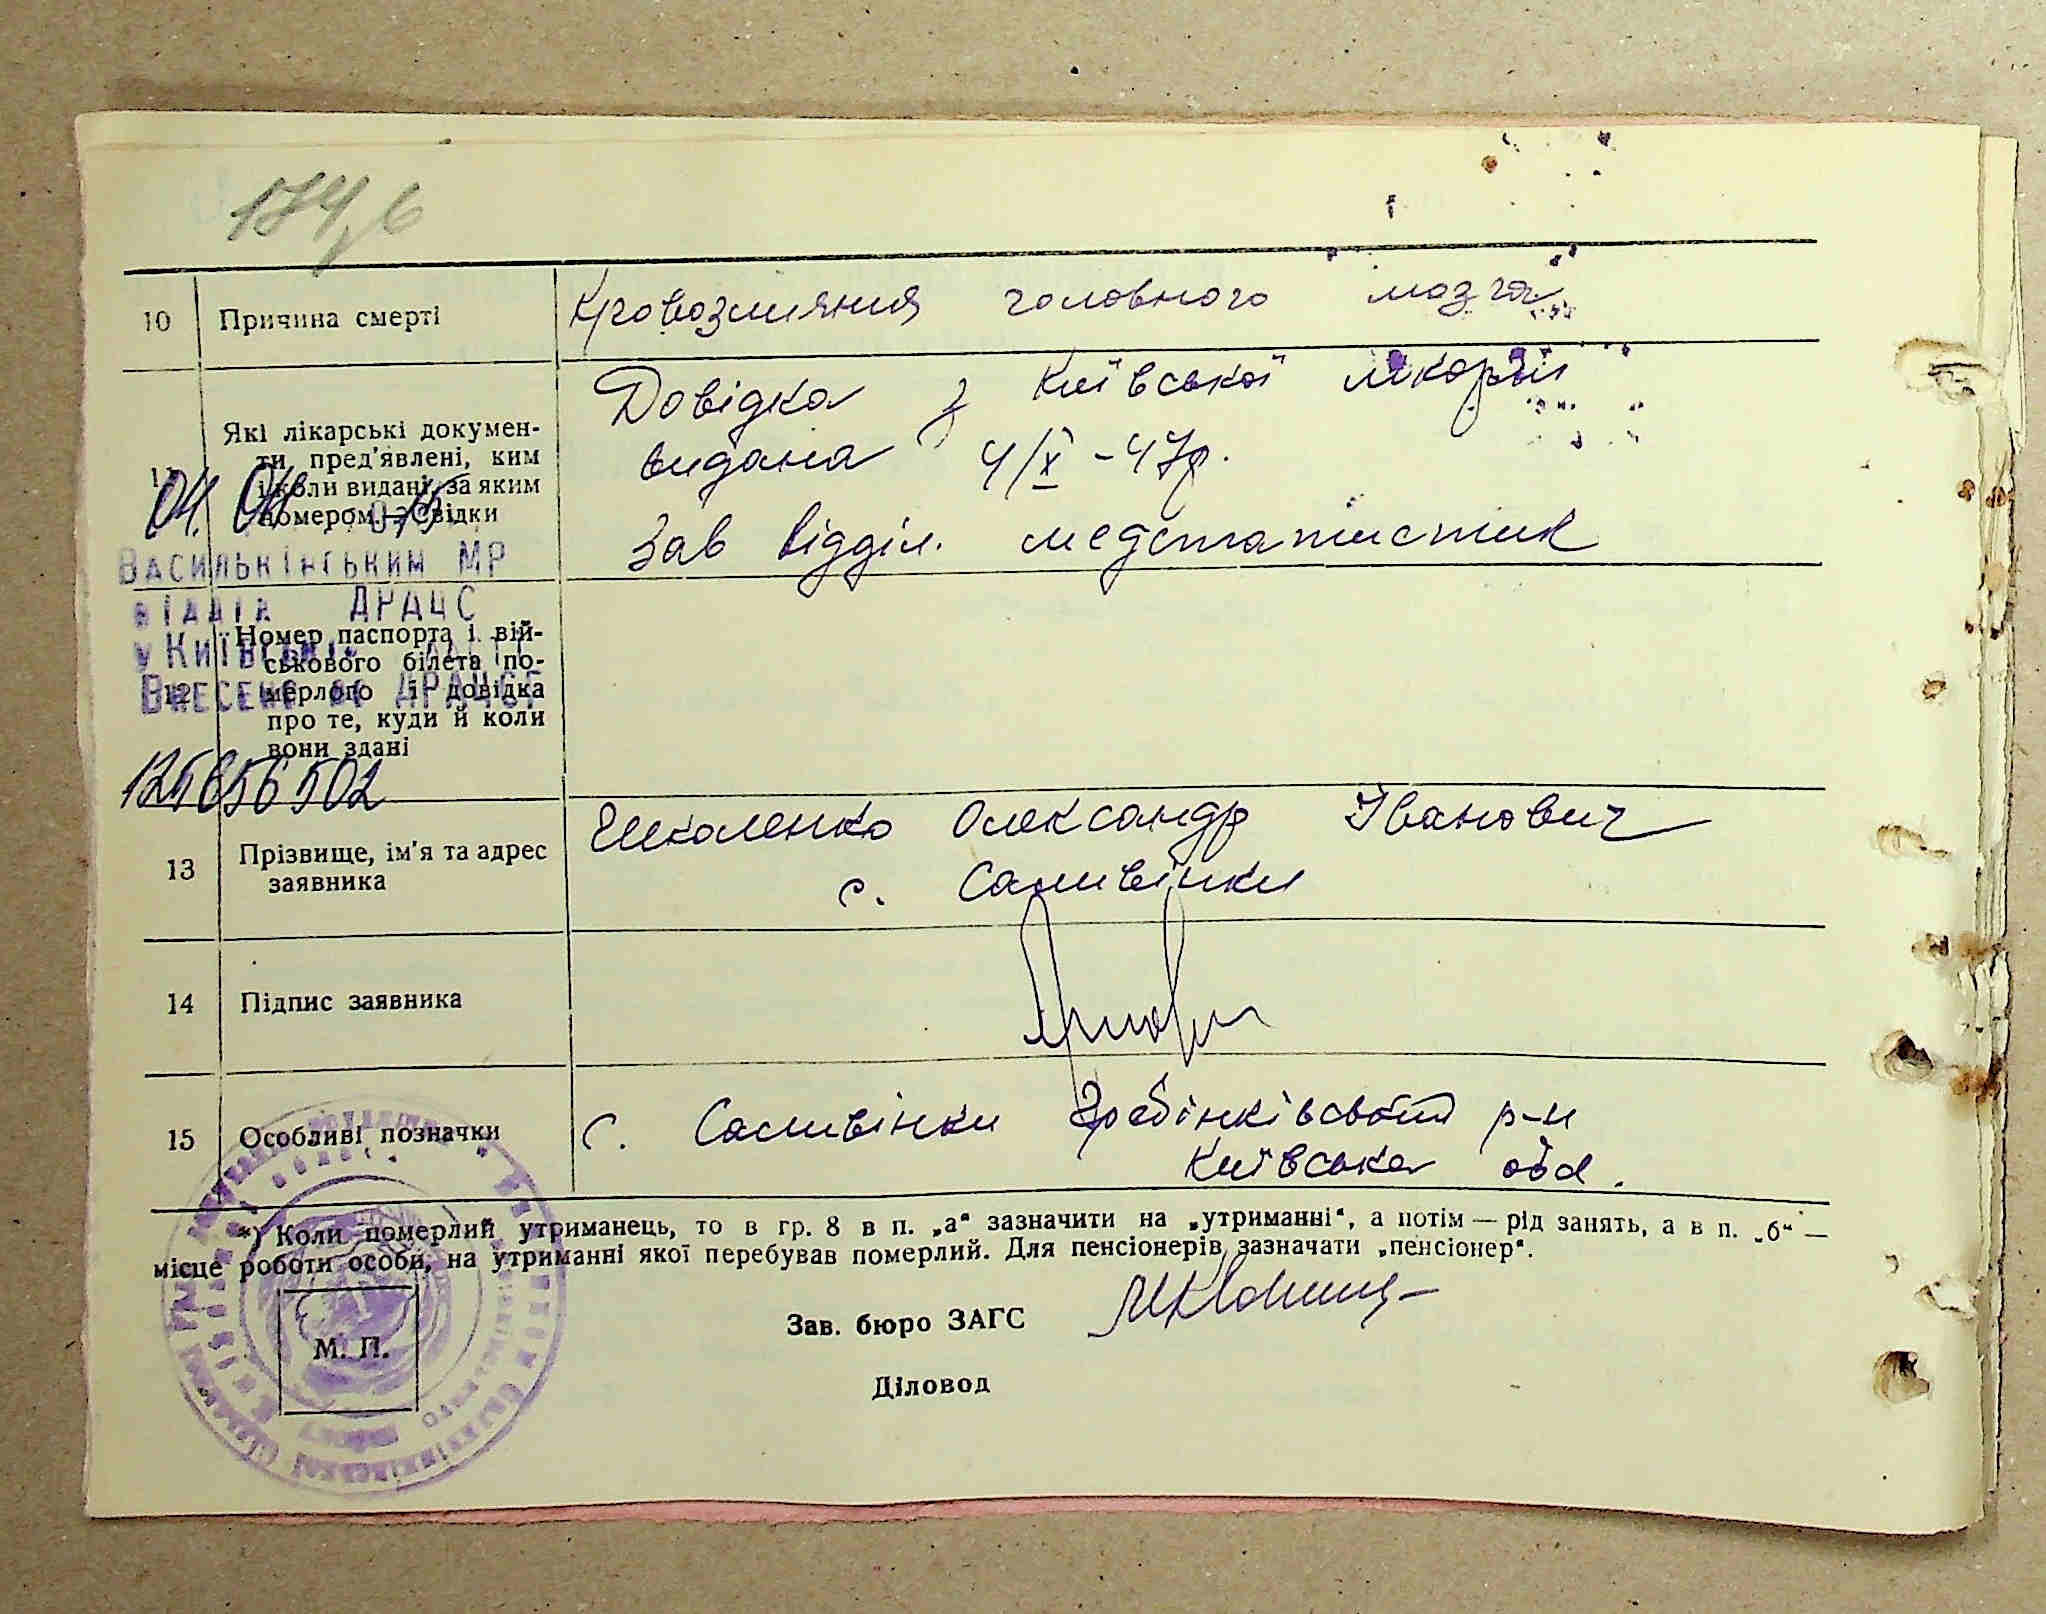 174, б
10 Причина смерті Кровозлияния головного мозга
11 Які лікарські докумен-
ти пред'явлені, ким
і коли видані, за яким
номером. Довідки
Довідка з Київської лікарні
видана 4/X – 47р.
Зав відділ. медстатистик
04. 04.
Васильківським МР
відділ ДРАЦС
у Київській області
Внесено до ДРАЦСГ
12 Номер паспорта і вій-
ськового білета по-
мерлого і довідка
про те, куди й коли
вони здані
125656502
13 Прізвище, ім'я та адрес
заявника
Шкаленко Олександр Іванович
с. Саливінки
14 Підпис заявника
15 Особливі позначки с. Саливінки Гребінківський р-н
Київська обл.
*) Коли померлий утриманець, то в гр. 8 в п. „а“ зазначити на „утриманні“, а потім — рід занять, а в п. „б“ —
місце роботи особи, на утриманні якої перебував померлий. Для пенсіонерів зазначати „пенсіонер“.
Зав. бюро ЗАГС
М. П.
Діловод